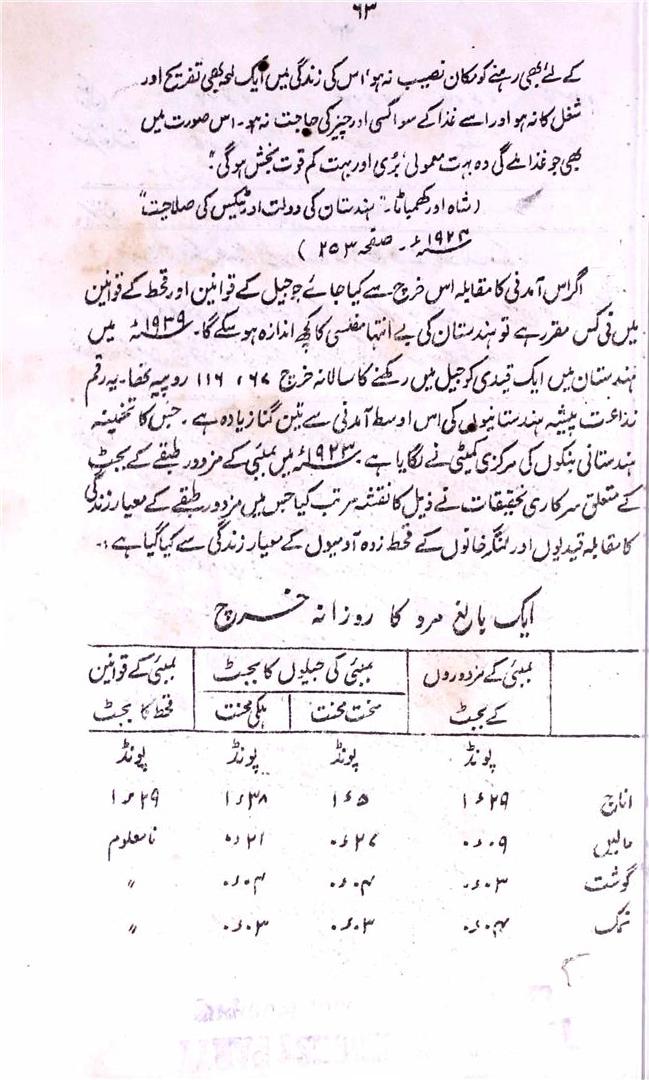 ۶۳
کے لئے بھی رہنے کو مکان نصیب نہ ہو، اس کی زندگی میں ایک لمحہ بھی تفریح اور
شغل کا نہ ہو اور اسے غذا کے سوا کسی اور چیز کی حاجت نہ ہو۔ اس صورت میں
بھی جو غذا ملے گی وہ بہت معمولی، بُری اور بہت کم قوت بخش ہو گی"۔
(شاہ اور کھمباٹا۔ "ہندستان کی دولت اور ٹیکس کی صلاحیت"
۱۹۲۴ء۔ صفحہ ۲۵۳)
اگر اس آمدنی کا مقابلہ اس خرچ سے کیا جائے جو جیل کے قوانین اور قحط کے قوانین
میں فی کس مقرر ہے تو ہندستان کی بے انتہا مفلسی کا کچھ اندازہ ہو سکے گا۔ ۱۹۳۹ء میں
ہندستان میں ایک قیدی کو جیل میں رکھنے کا سالانہ خرچ ۱۱۶٫۶۷ روپیہ تھا۔ یہ رقم
زراعت پیشہ ہندستانیوں کی اس اوسط آمدنی سے تین گنا زیادہ ہے۔ جس کا تخمینہ
ہندستانی بنکوں کی مرکزی کمیٹی نے لگایا ہے۔ ۱۹۲۳ء میں بمبئی کے مزدور طبقے کے بجٹ
کے متعلق سرکاری تحقیقات نے ذیل کا نقشہ مرتب کیا جس میں مزدور طبقے کے معیار زندگی
کا مقابلہ قیدیوں اور لنگر خانوں کے قحط زدہ آدمیوں کے معیار زندگی سے کیا گیا ہے :۔
ایک بالغ مرد کا روزانہ خرچ
بمبئی کے مزدوروں کے بجٹ | بمبئی کی جیلوں کا بجٹ | بمبئی کے قوانین قحط کا بجٹ
سخت محنت | ہلکی محنت
پونڈ | پونڈ | پونڈ | پونڈ
اناج | ۱٫۲۹ | ۱٫۵ | ۱٫۳۸ | ۱٫۲۹
دالیں | ۰٫۰۹ | ۰٫۲۷ | ۰٫۲۱ | نامعلوم
گوشت | ۰٫۰۳ | ۰٫۰۴ | ۰٫۰۴ | "
نمک | ۰٫۰۴ | ۰٫۰۳ | ۰٫۰۳ | "